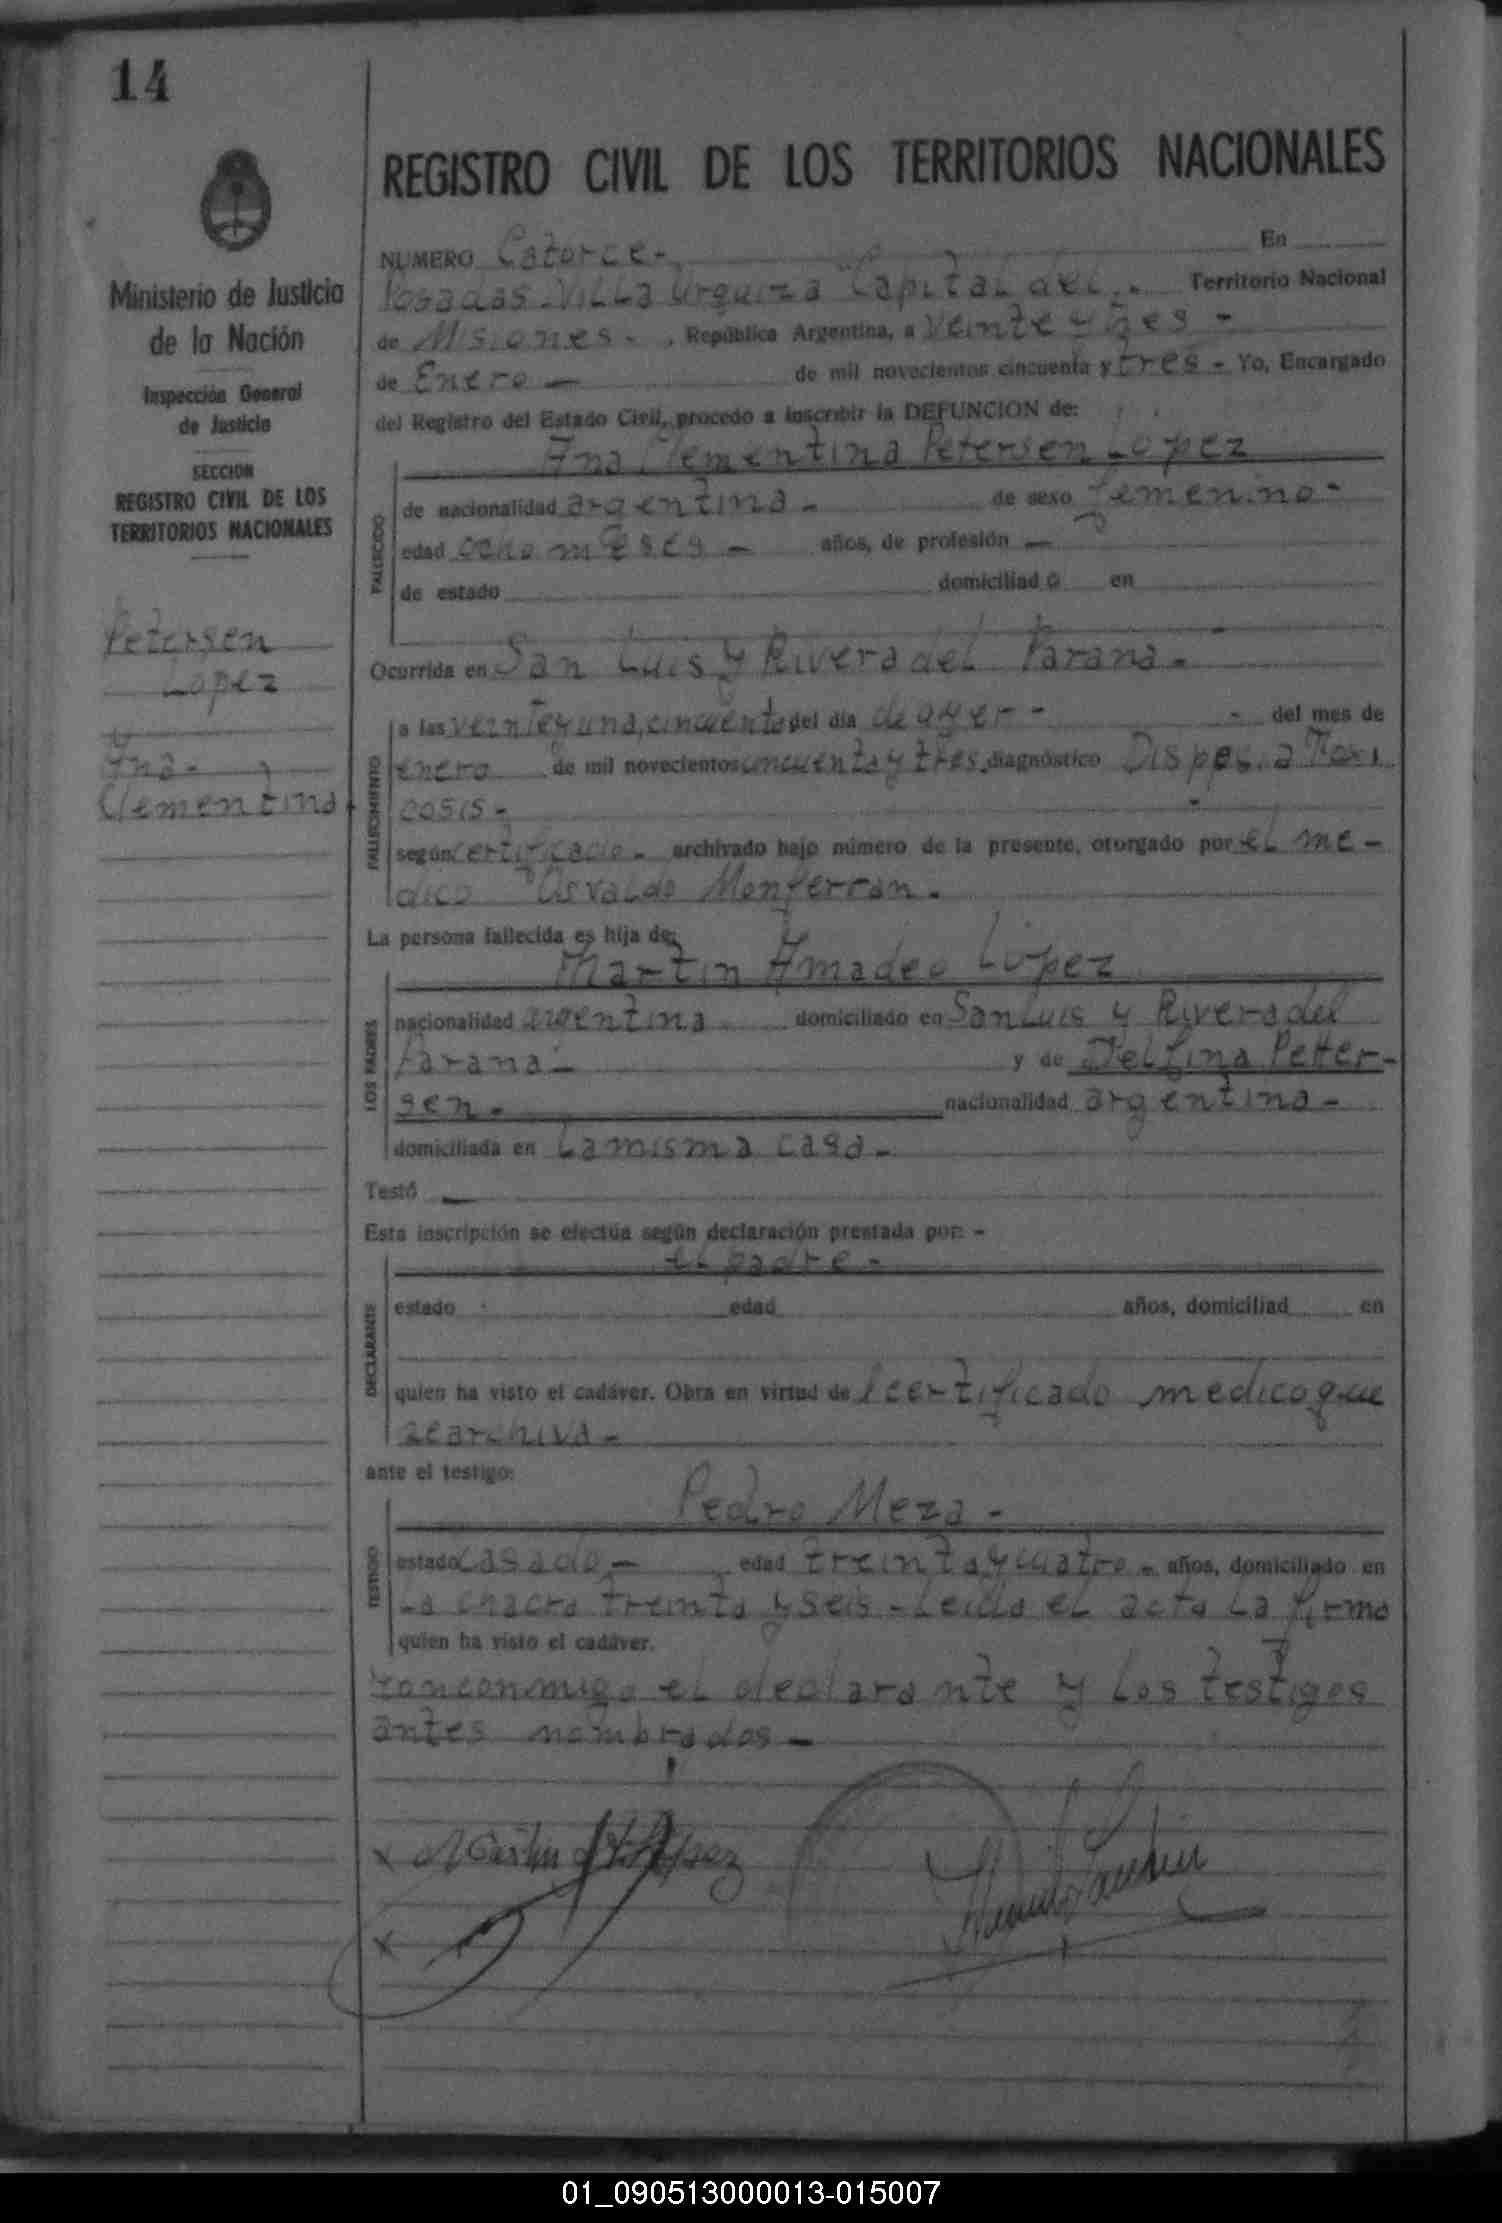 14
REGISTRO CIVIL DE LOS TERRITORIOS NACIONALES
Ministerio de Justicia
de la Nación
Inspección General
de Justicia
SECCION
REGISTRO CIVIL DE LOS
TERRITORIOS NACIONALES
Petersen
Lopez
Ana-
Clementina
NUMERO Catorce- En
Posadas-Villa Urquiza Capital del Territorio Nacional
de Misiones- , República Argentina, a veinte y tres -
de Enero - de mil novecientos cincuenta y tres - Yo, Encargado
del Registro del Estado Civil, procedo a inscribir la DEFUNCION de:
Ana Clementina Petersen Lopez
FALLECIDO
de nacionalidad argentina - de sexo femenino-
edad ocho meses - años, de profesión -
de estado domiciliad o en
Ocurrida en San Luis y Rivera del Parana-
FALLECIMIENTO
a las veintey una, cincuenta del día de ayer - - del mes de
enero de mil novecientos cincuenta y tres diagnóstico Dispepsia Toxi
cosis-
según certificado - archivado bajo número de la presente, otorgado por el me-
dico Osvaldo Monferran-
La persona fallecida es hija de:
Martin Amadeo Lopez
LOS PADRES
nacionalidad argentina domiciliado en San Luis y Rivera del
Parana- y de Delfina Petter-
sen- nacionalidad argentina-
domiciliada en La misma casa-
Testó -
Esta inscripción se efectúa según declaración prestada por: -
el padre-
DECLARANTE
estado edad años, domiciliad en
quien ha visto el cadáver. Obra en virtud de l certificado medico que
se archiva-
ante el testigo:
Pedro Meza-
TESTIGO
estado casado- edad treinta y cuatro- años, domiciliado en
La chacra treinta y seis - Leida el acta La firma
quien ha visto el cadáver.
ron conmigo el declarante y los testigos
antes nombrados-
x Martin Lopez
x
01_090513000013-015007